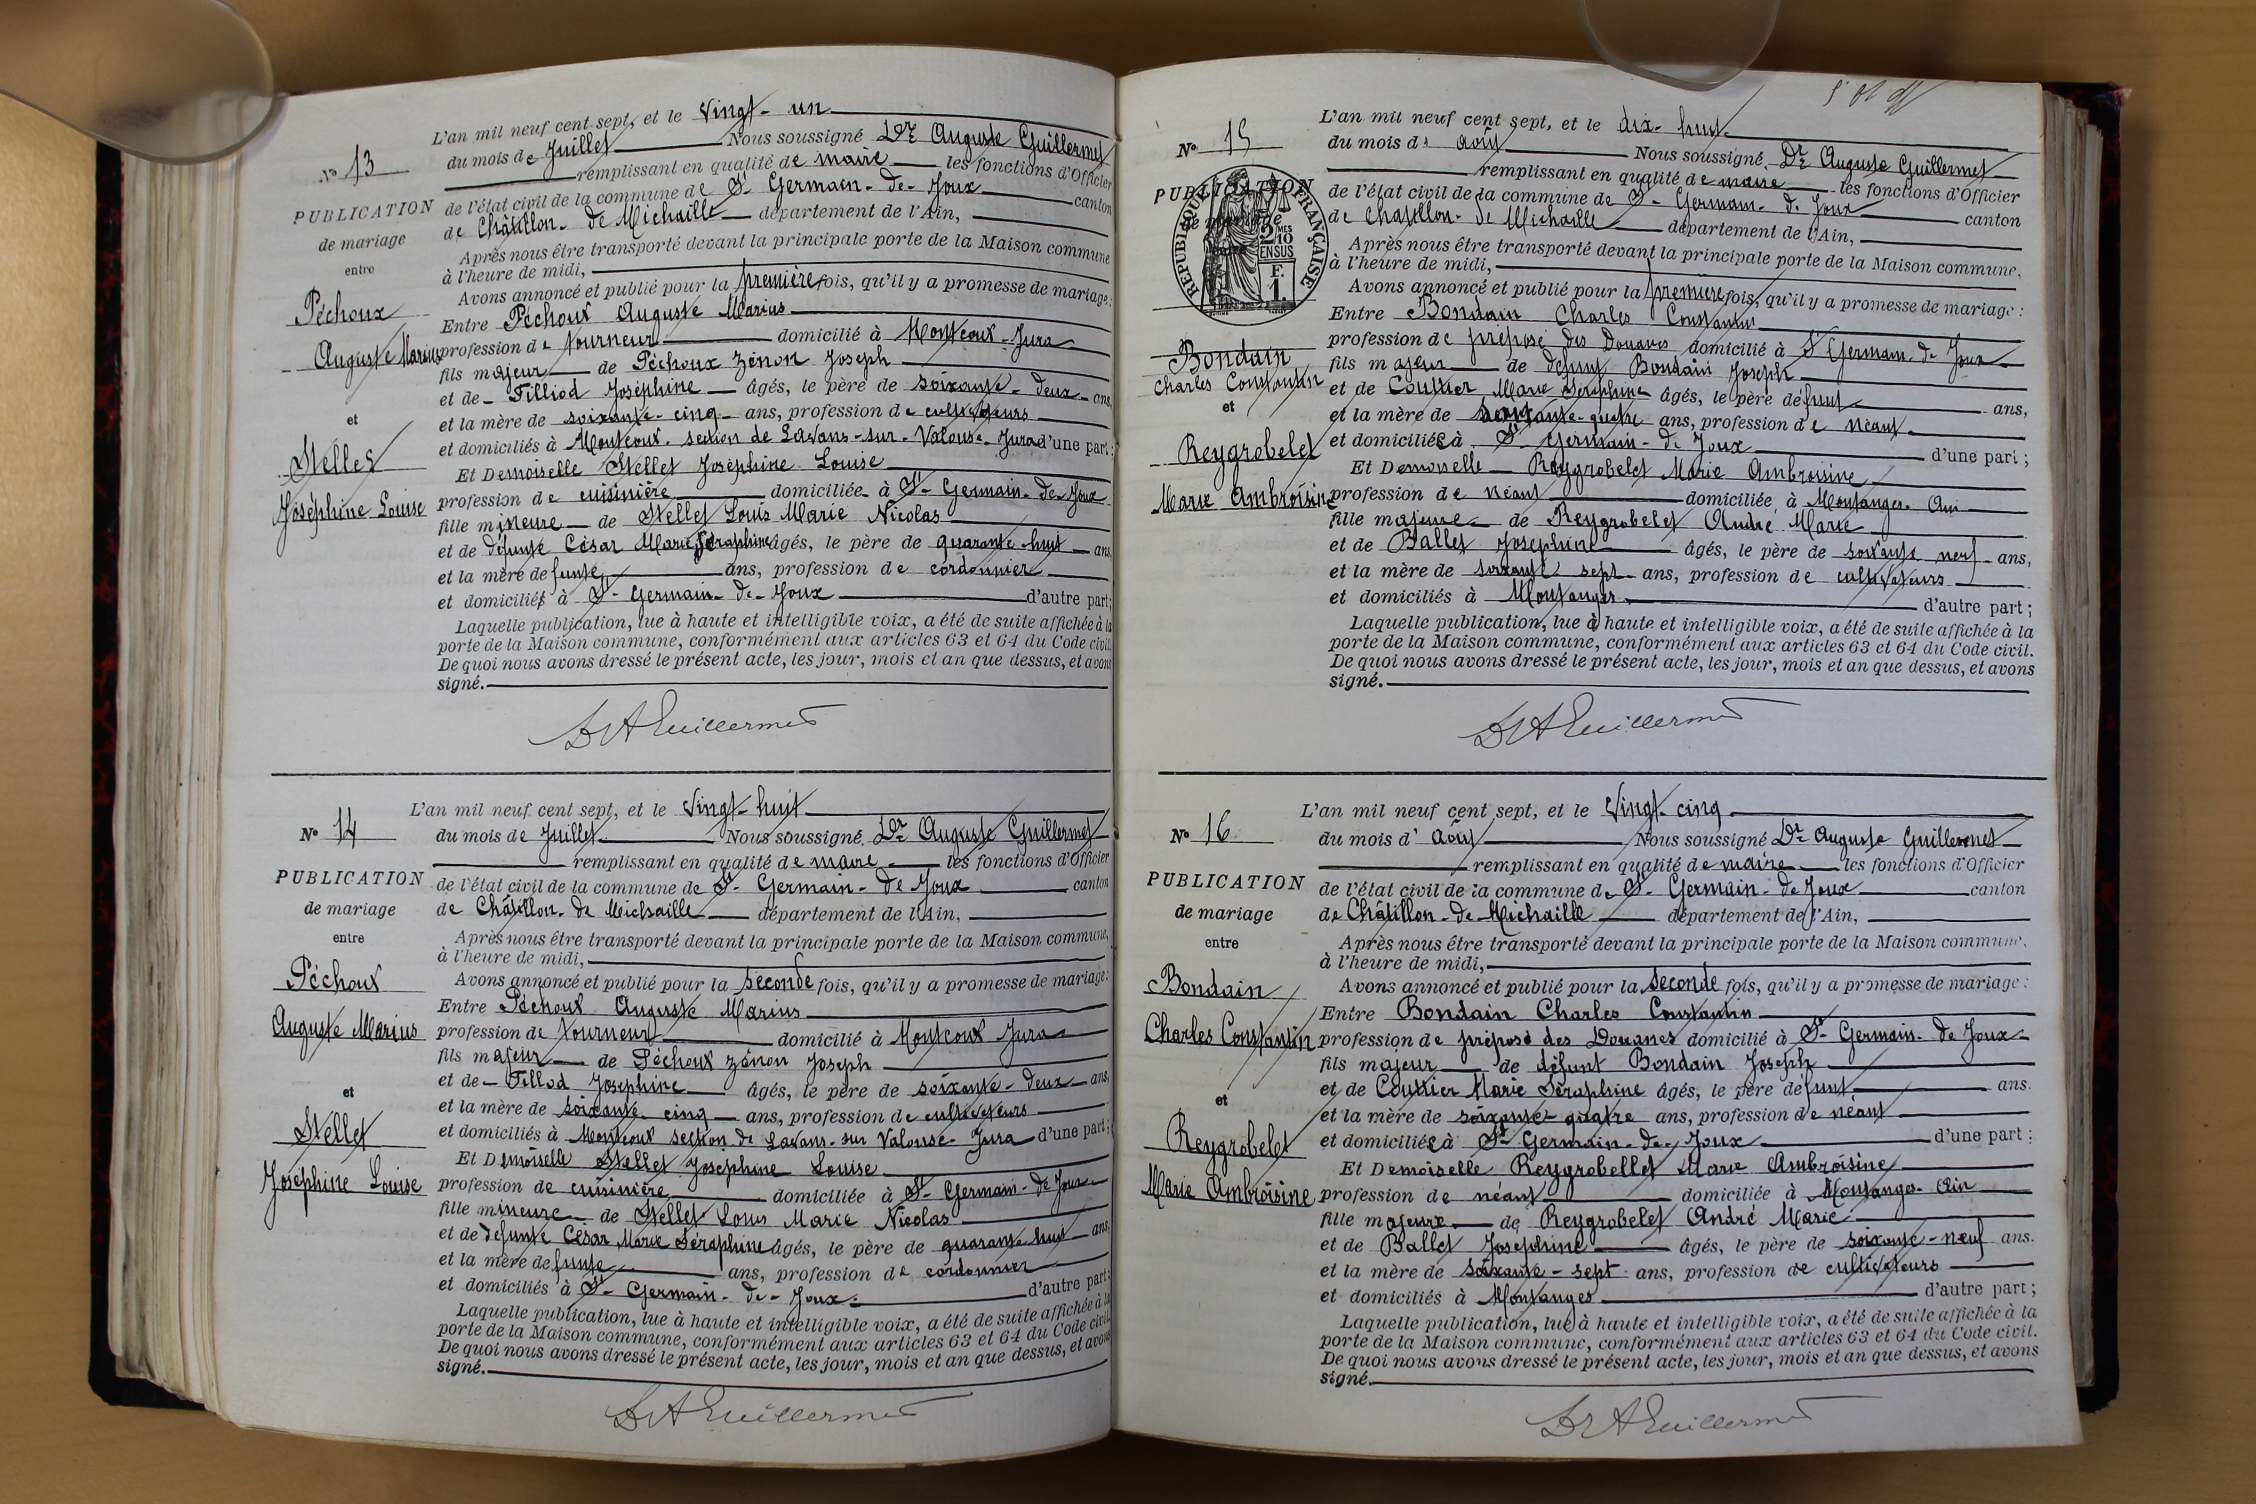 N° 13
PUBLICATION
de mariage
entre
Péchoux
Auguste Marius
et
Stellet
Joséphine Louise
L'an mil neuf cent sept, et le Vingt-un
du mois de Juillet Nous soussigné Dr Auguste Guillermet
remplissant en qualité de maire les fonctions d'Officier
de l'état civil de la commune de St-Germain-de-Joux canton
de Châtillon-de-Michaille département de l'Ain,
Après nous être transporté devant la principale porte de la Maison commune
à l'heure de midi,
Avons annoncé et publié pour la première fois, qu'il y a promesse de mariage:
Entre Péchoux Auguste Marius
profession de tourneur domicilié à Montcoux-Jura
fils majeur de Péchoux Zénon Joseph
et de Filliod Joséphine âgés, le père de soixante-deux ans,
et la mère de soixante-cinq ans, profession de cultivateurs
et domiciliés à Montcoux-section de Lavans-sur-Valouse-Jura d'une part;
Et Demoiselle Stellet Joséphine Louise
profession de cuisinière domiciliée à St-Germain-de-Joux
fille mineure de Stellet Louis Marie Nicolas
et de défunte César Marie Séraphine âgés, le père de quarante-huit ans,
et la mère défunte ans, profession de cordonnier
et domiciliés à St-Germain-de-Joux d'autre part;
Laquelle publication, lue à haute et intelligible voix, a été de suite affichée à la
porte de la Maison commune, conformément aux articles 63 et 64 du Code civil.
De quoi nous avons dressé le présent acte, les jour, mois et an que dessus, et avons
signé.
Dr A Guillermet
N° 14
PUBLICATION
de mariage
entre
Péchoux
Auguste Marius
et
Stellet
Joséphine Louise
L'an mil neuf cent sept, et le Vingt-huit
du mois de Juillet Nous soussigné Dr Auguste Guillermet
remplissant en qualité de maire les fonctions d'Officier
de l'état civil de la commune de St-Germain-de-Joux canton
de Châtillon-de-Michaille département de l'Ain,
Après nous être transporté devant la principale porte de la Maison commune,
à l'heure de midi,
Avons annoncé et publié pour la seconde fois, qu'il y a promesse de mariage:
Entre Péchoux Auguste Marius
profession de tourneur domicilié à Montcoux Jura
fils majeur de Péchoux Zénon Joseph
et de Fillod Joséphine âgés, le père de soixante-deux ans,
et la mère de soixante-cinq ans, profession de cultivateurs
et domiciliés à Montcoux section de Lavans-sur Valouse-Jura d'une part;
Et Demoiselle Stellet Joséphine Louise
profession de cuisinière domiciliée à St-Germain-de Joux
fille mineure de Stellet Louis Marie Nicolas
et de défunte César Marie Séraphine âgés, le père de quarante-huit ans,
et la mère défunte ans, profession de cordonnier
et domiciliés à St-Germain-de-Joux d'autre part;
Laquelle publication, lue à haute et intelligible voix, a été de suite affichée à la
porte de la Maison commune, conformément aux articles 63 et 64 du Code civil.
De quoi nous avons dressé le présent acte, les jour, mois et an que dessus, et avons
signé.
Dr A Guillermet
N° 15
PUBLICATION
de mariage
entre
RÉPUBLIQUE FRANÇAISE
2 MES
10
EN SUS
F.
1.
Bondain
Charles Constantin
et
Reygrobelet
Marie Ambroisine
L'an mil neuf cent sept, et le dix-huit
du mois d'août Nous soussigné Dr Auguste Guillermet
remplissant en qualité de maire les fonctions d'Officier
de l'état civil de la commune de St-Germain-de Joux canton
de Châtillon-de Michaille département de l'Ain,
Après nous être transporté devant la principale porte de la Maison commune,
à l'heure de midi,
Avons annoncé et publié pour la première fois, qu'il y a promesse de mariage:
Entre Bondain Charles Constantin
profession de préposé des Douanes domicilié à St Germain-de Joux
fils majeur de défunt Bondain Joseph
et de Couttier Marie Séraphine âgés, le père défunt ans,
et la mère de soixante-quatre ans, profession de néant
et domiciliée à St-Germain-de Joux d'une part;
Et Demoiselle Reygrobelet Marie Ambroisine
profession de néant domiciliée à Montanges-Ain
fille majeure de Reygrobelet André Marie
et de Ballet Joséphine âgés, le père de soixante neuf ans,
et la mère de soixante sept ans, profession de cultivateurs
et domiciliés à Montanges d'autre part;
Laquelle publication, lue à haute et intelligible voix, a été de suite affichée à la
porte de la Maison commune, conformément aux articles 63 et 64 du Code civil.
De quoi nous avons dressé le présent acte, les jour, mois et an que dessus, et avons
signé.
Dr A Guillermet
N° 16
PUBLICATION
de mariage
entre
Bondain
Charles Constantin
et
Reygrobelet
Marie Ambroisine
L'an mil neuf cent sept, et le Vingt-cinq
du mois d'août Nous soussigné Dr Auguste Guillermet
remplissant en qualité de maire les fonctions d'Officier
de l'état civil de la commune de St-Germain-de Joux canton
de Châtillon-de-Michaille département de l'Ain,
Après nous être transporté devant la principale porte de la Maison commune,
à l'heure de midi,
Avons annoncé et publié pour la seconde fois, qu'il y a promesse de mariage:
Entre Bondain Charles Constantin
profession de préposé des Douanes domicilié à St-Germain-de Joux
fils majeur de défunt Bondain Joseph
et de Couttier Marie Séraphine âgés, le père défunt ans.
et la mère de soixante-quatre ans, profession de néant
et domiciliée à St-Germain-de-Joux d'une part;
Et Demoiselle Reygrobellet Marie Ambroisine
profession de néant domiciliée à Montanges-Ain
fille majeure de Reygrobelet André Marie
et de Ballet Joséphine âgés, le père de soixante-neuf ans.
et la mère de soixante-sept ans, profession de cultivateurs
et domiciliés à Montanges d'autre part;
Laquelle publication, lue à haute et intelligible voix, a été de suite affichée à la
porte de la Maison commune, conformément aux articles 63 et 64 du Code civil.
De quoi nous avons dressé le présent acte, les jour, mois et an que dessus, et avons
signé.
Dr A Guillermet